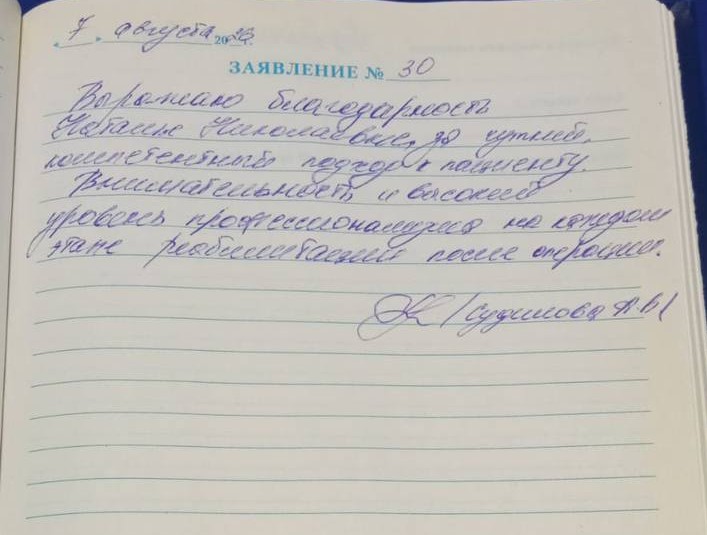 « 7 » августа 2023 г.
ЗАЯВЛЕНИЕ № 30
Выражаю благодарность
Наталье Николаевне, за чуткий,
компетентный подход к пациенту.
Внимательность и высокий
уровень профессионализма на каждом
этапе реабилитации после операции.
/Судилова А.В/